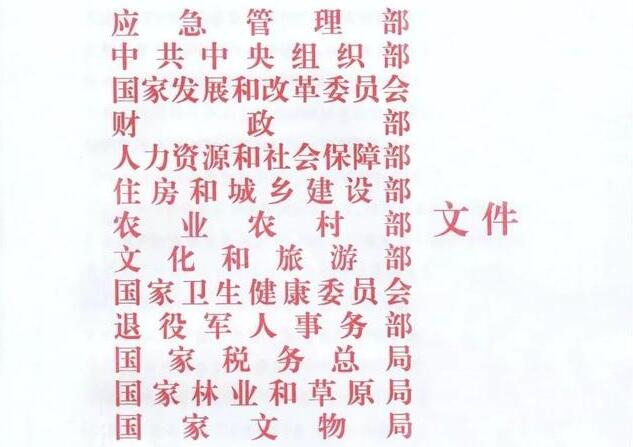 应急管理部
中共中央组织部
国家发展和改革委员会
财政部
人力资源和社会保障部
住房和城乡建设部
农业农村部 文件
文化和旅游部
国家卫生健康委员会
退役军人事务部
国家税务总局
国家林业和草原局
国家文物局